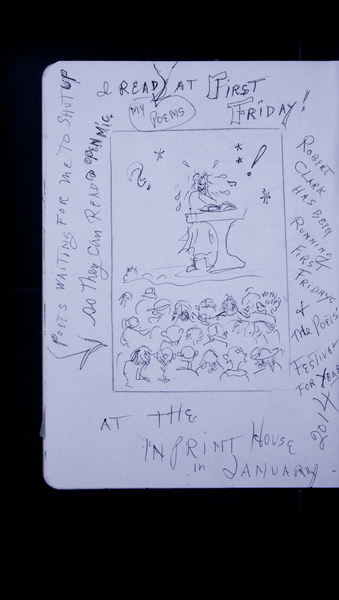 I READ AT FIRST
MY
POEMS
FRIDAY!
POETS WAITING FOR ME TO SHUT UP
SO THEY CAN READ @ OPEN MIC.
?
!
ROBERT
CLARK
HAS BEEN
RUNNING
FIRST
FRIDAYS
+
THE POETS
FESTIVAL
FOR YEARS
2014
AT THE
INPRINT HOUSE
in JANUARY